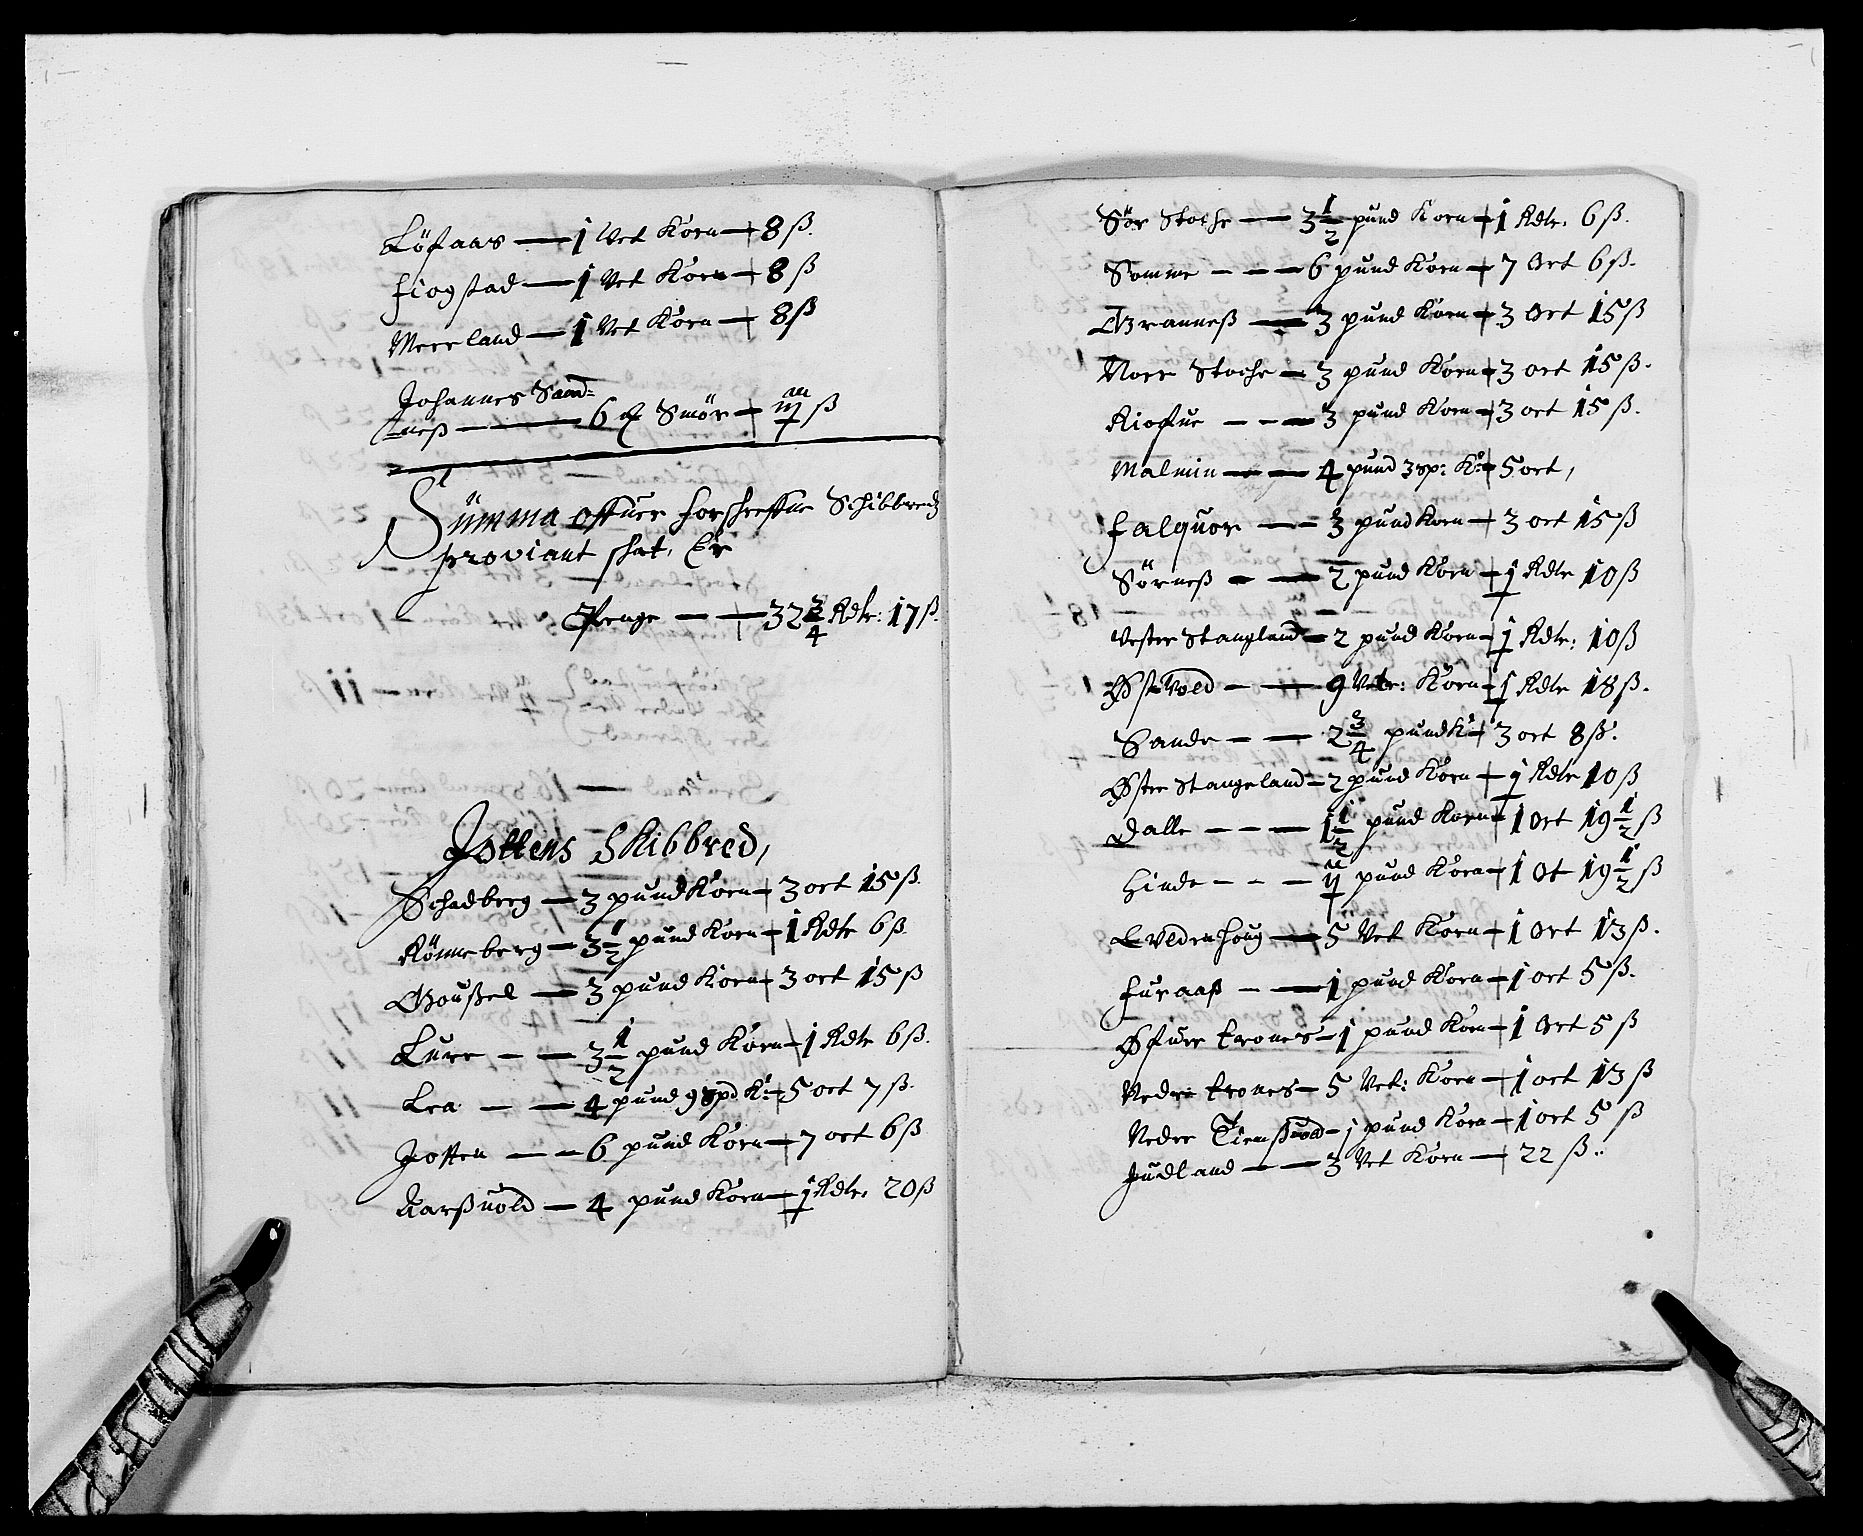 Löfaas — 1 Vet Korn — 8 ß.
Fiogstad — 1 Vet Korn — 8 ß
Meeland — 1 Vet Korn — 8 ß
Johannes Sand-
neß — 6 Smör — ß
Summa offuer forskreffne Schibbredz
proviant skat, Er
Penge — 32 3/4 Rdlr: 17 ß.
Jottens Skibbred,
Schadberg — 3 pund Korn — 3 ort 15 ß.
Rönneberg — 3 1/2 pund Korn — 1 Rdlr 6 ß.
Goußel — 3 pund Korn — 3 ort 15 ß
Lure — 3 1/2 pund Korn — 1 Rdlr 6 ß.
Lea — 4 pund 9 spd K: — 5 ort 7 ß.
Jotten — 6 pund Korn — 7 ort 6 ß
Aarßuold — 4 pund Korn — 1 Rdlr. 20 ß
Sör Stocke — 3 1/2 pund Korn — 1 Rdlr. 6 ß.
Somme — 6 pund Korn — 7 Ort 6 ß.
Granneß — 3 pund Korn — 3 Ort 15 ß
Norr Stocke — 3 pund Korn — 3 ort 15 ß.
Kiofue — 3 pund Korn — 3 ort 15 ß.
Malmin — 4 pund 3 sp: K: — 5 ort,
Falquor — 3 pund Korn — 3 ort 15 ß
Sörneß — 2 pund Korn — 1 Rdlr 10 ß
Vester Stangland — 2 pund Korn — 1 Rdlr: 10 ß
Østuold — 9 Vet: Korn — 1 Rdlr 18 ß.
Sande — 2 3/4 pund K: — 3 ort 8 ß.
Øster Stangeland — 2 pund Korn — 1 Rdlr 10 ß
Dalle — 1 1/2 pund Korn — 1 Ort 19 1/2 ß
Hinde — pund Korn — 1 Ot 19 1/2 ß
Evedenhoug — 5 Vet Korn — 1 Ort 13 ß.
Furaaß — 1 pund Korn — 1 ort 5 ß.
Øfuer trones — 1 pund Korn — 1 Ort 5 ß
Nedre trones — 5 Vet: Korn — 1 ort 13 ß
Neder Tiemßuold — 1 pund Korn — 1 ort 5 ß
Judland — 3 Vet Korn — 22 ß.